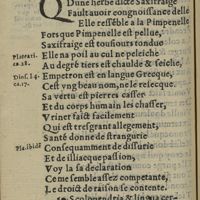 Dune herbe dicte Saxifrage
Fault auoir congnoissance & de
Elle ressẽble a la Pimpenelle
Fors que Pimpenelle est pellue,
Saxifraige est tousiours tondue
Plateari. Elle na poil au cul ne pelriche
ca.28. Au degré tiers est chaulde & seiche,
Dios. l.4. Empetron est en langue Grecque,
ca.17. Cest vng beau nom, ne le reiecque.
Sa vertu est pierre casser
Et du corps humain les chasser,
Vriner faict facilement
Qui est tresgrant allegement,
Santé donne de strangurie
Pla. ibidẽ Consequamment de dissurie
Et de illiacque passion,
Voy la sa declaration
Ce me semble assez competante,
Le droict de raison se contente.
Scolopendria & lingua cer-